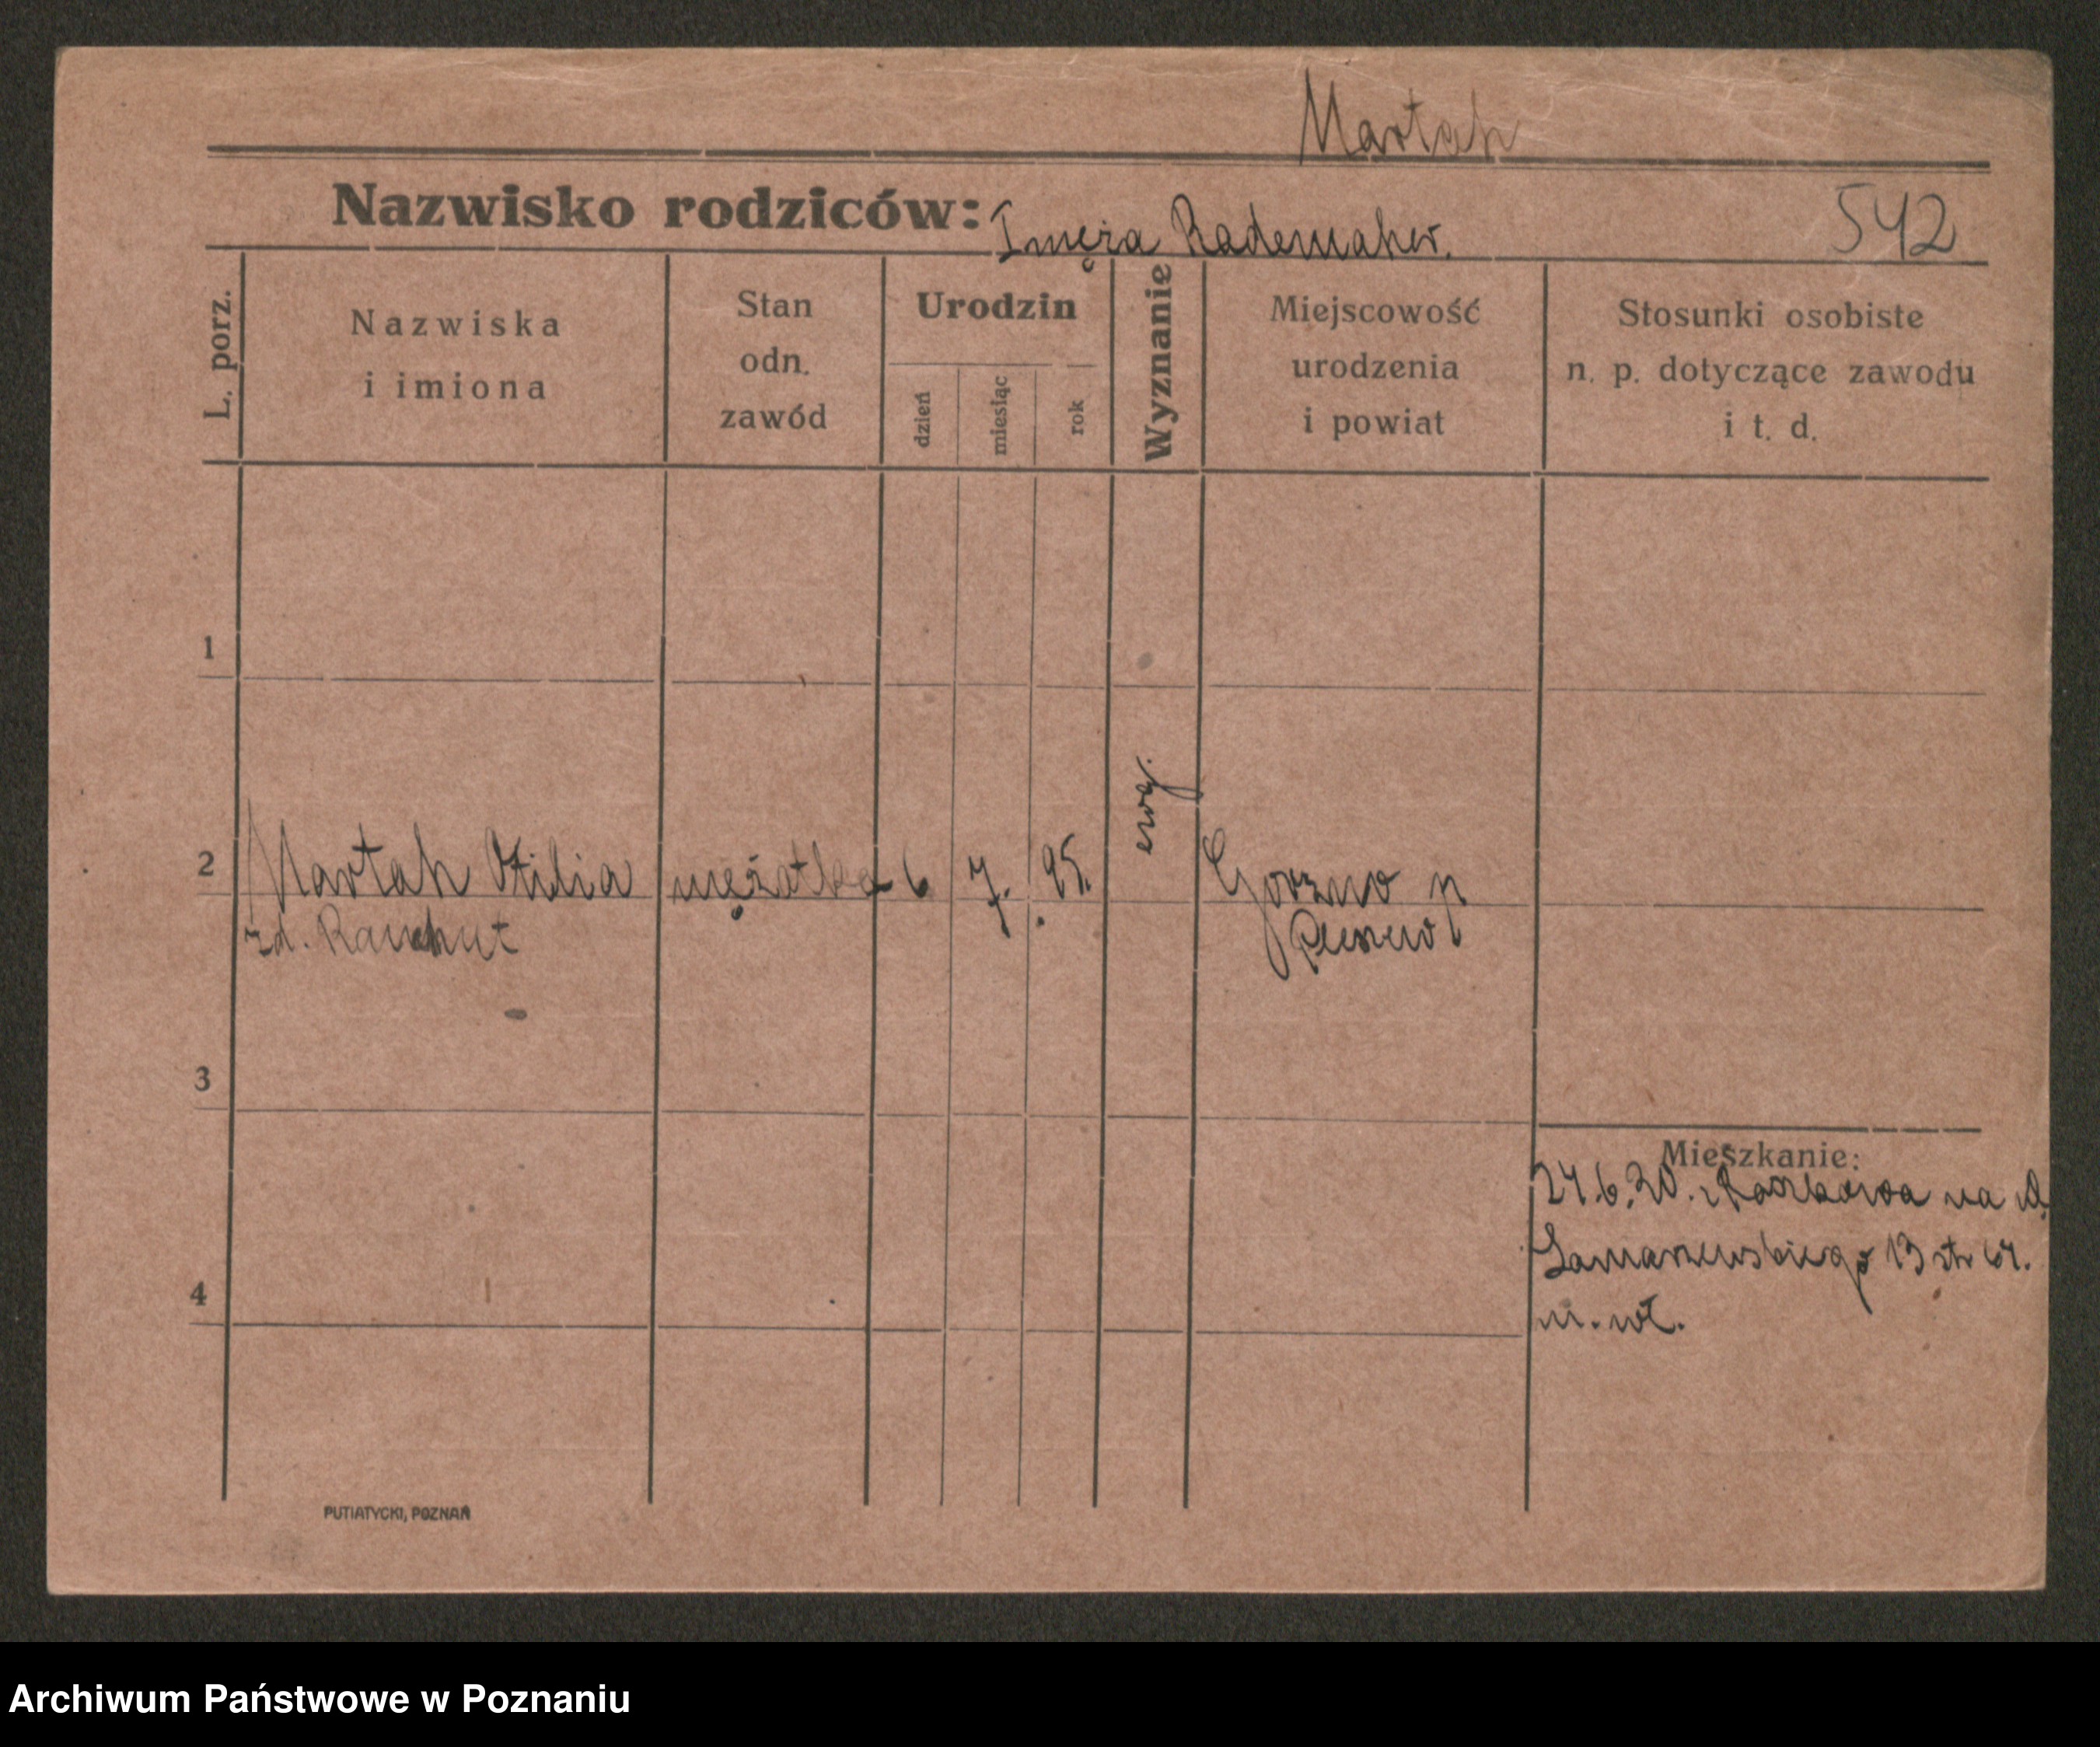 Martah
Nazwisko rodziców: I męża Rademaher.
542
L. porz.
Nazwiska
i imiona
Stan
odn.
zawód
Urodzin
dzień
miesiąc
rok
Wyznanie
Miejscowość
urodzenia
i powiat
Stosunki osobiste
n. p. dotyczące zawodu
i t. d.
1
2 Martah Otilia mężatka 6 7. 95. ewg. Gorzno p
zd. Rauhut Pleszew
3
Mieszkanie:
24.6.20. z Raszkowa na ul.
Samarzewskiego 13 str 64.
m. wł.
4
PUTIATYCKI, POZNAŃ
Archiwum Państwowe w Poznaniu